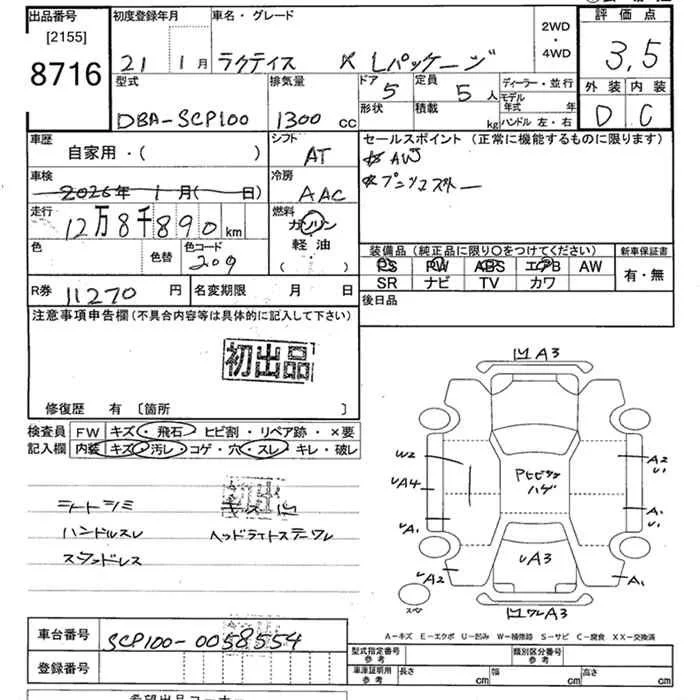 出品番号
[2155]
8716
初度登録年月
21 1月
車名・グレード
ラクティス X Lパッケージ
2WD
・
4WD
評価点
3,5
外装 内装
D C
型式
DBA-SCP100
排気量
1300 cc
ドア 5
形状
定員 5 人
積載 kg
ディーラー・並行
モデル年式 年
ハンドル 左・右
車歴
自家用・( )
シフト
AT
車検
2026年 1月( 日)
冷房
AAC
走行
12万8千890km
燃料
ガソリン
軽油
( )
色
色替
色コード
209
R券 11270 円
名変期限 月 日
セールスポイント (正常に機能するものに限ります)
AW
装備品 (純正品に限り○をつけてください)
PS PW ABS エアB AW
SR ナビ TV カワ
新車保証書
有・無
後日品
注意事項申告欄(不具合内容等は具体的に記入して下さい)
初出品
修復歴 有 [箇所 ]
検査員
記入欄
FW キズ・飛石・ヒビ割・リペア跡・×要
内装 キズ・汚レ・コゲ・穴・スレ・キレ・破レ
シートシミ
ハンドルスレ
ヘッドライトステーワレ
スタッドレス
凹A3
W2
UA4
UA1
UA2
Pヒビワレ
ハゲ
A2
U1
A1
U1
A1
UA3
凹ワレA3
スペア
A-キズ E-エクボ U-凹み W-補修跡 S-サビ C-腐食 XX-交換済
車台番号 SCP100-0058554
登録番号
型式指定番号
参考
類別区分番号
参考
車庫証明用
参考
長さ cm 幅 cm 高さ cm
希望出品コーナー